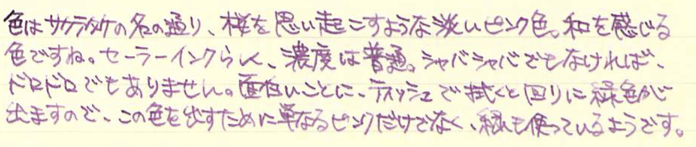 色はサクラダケの名の通り、桜を思い起こすような淡いピンク色。和を感じる
色ですね。セーラーインクらしく、濃度は普通。シャバシャバでもなければ、
ドロドロでもありません。面白いことに、ティッシュで拭くと回りに緑色が
出ますので、この色を出すために単なるピンクだけでなく、緑も使っているようです。